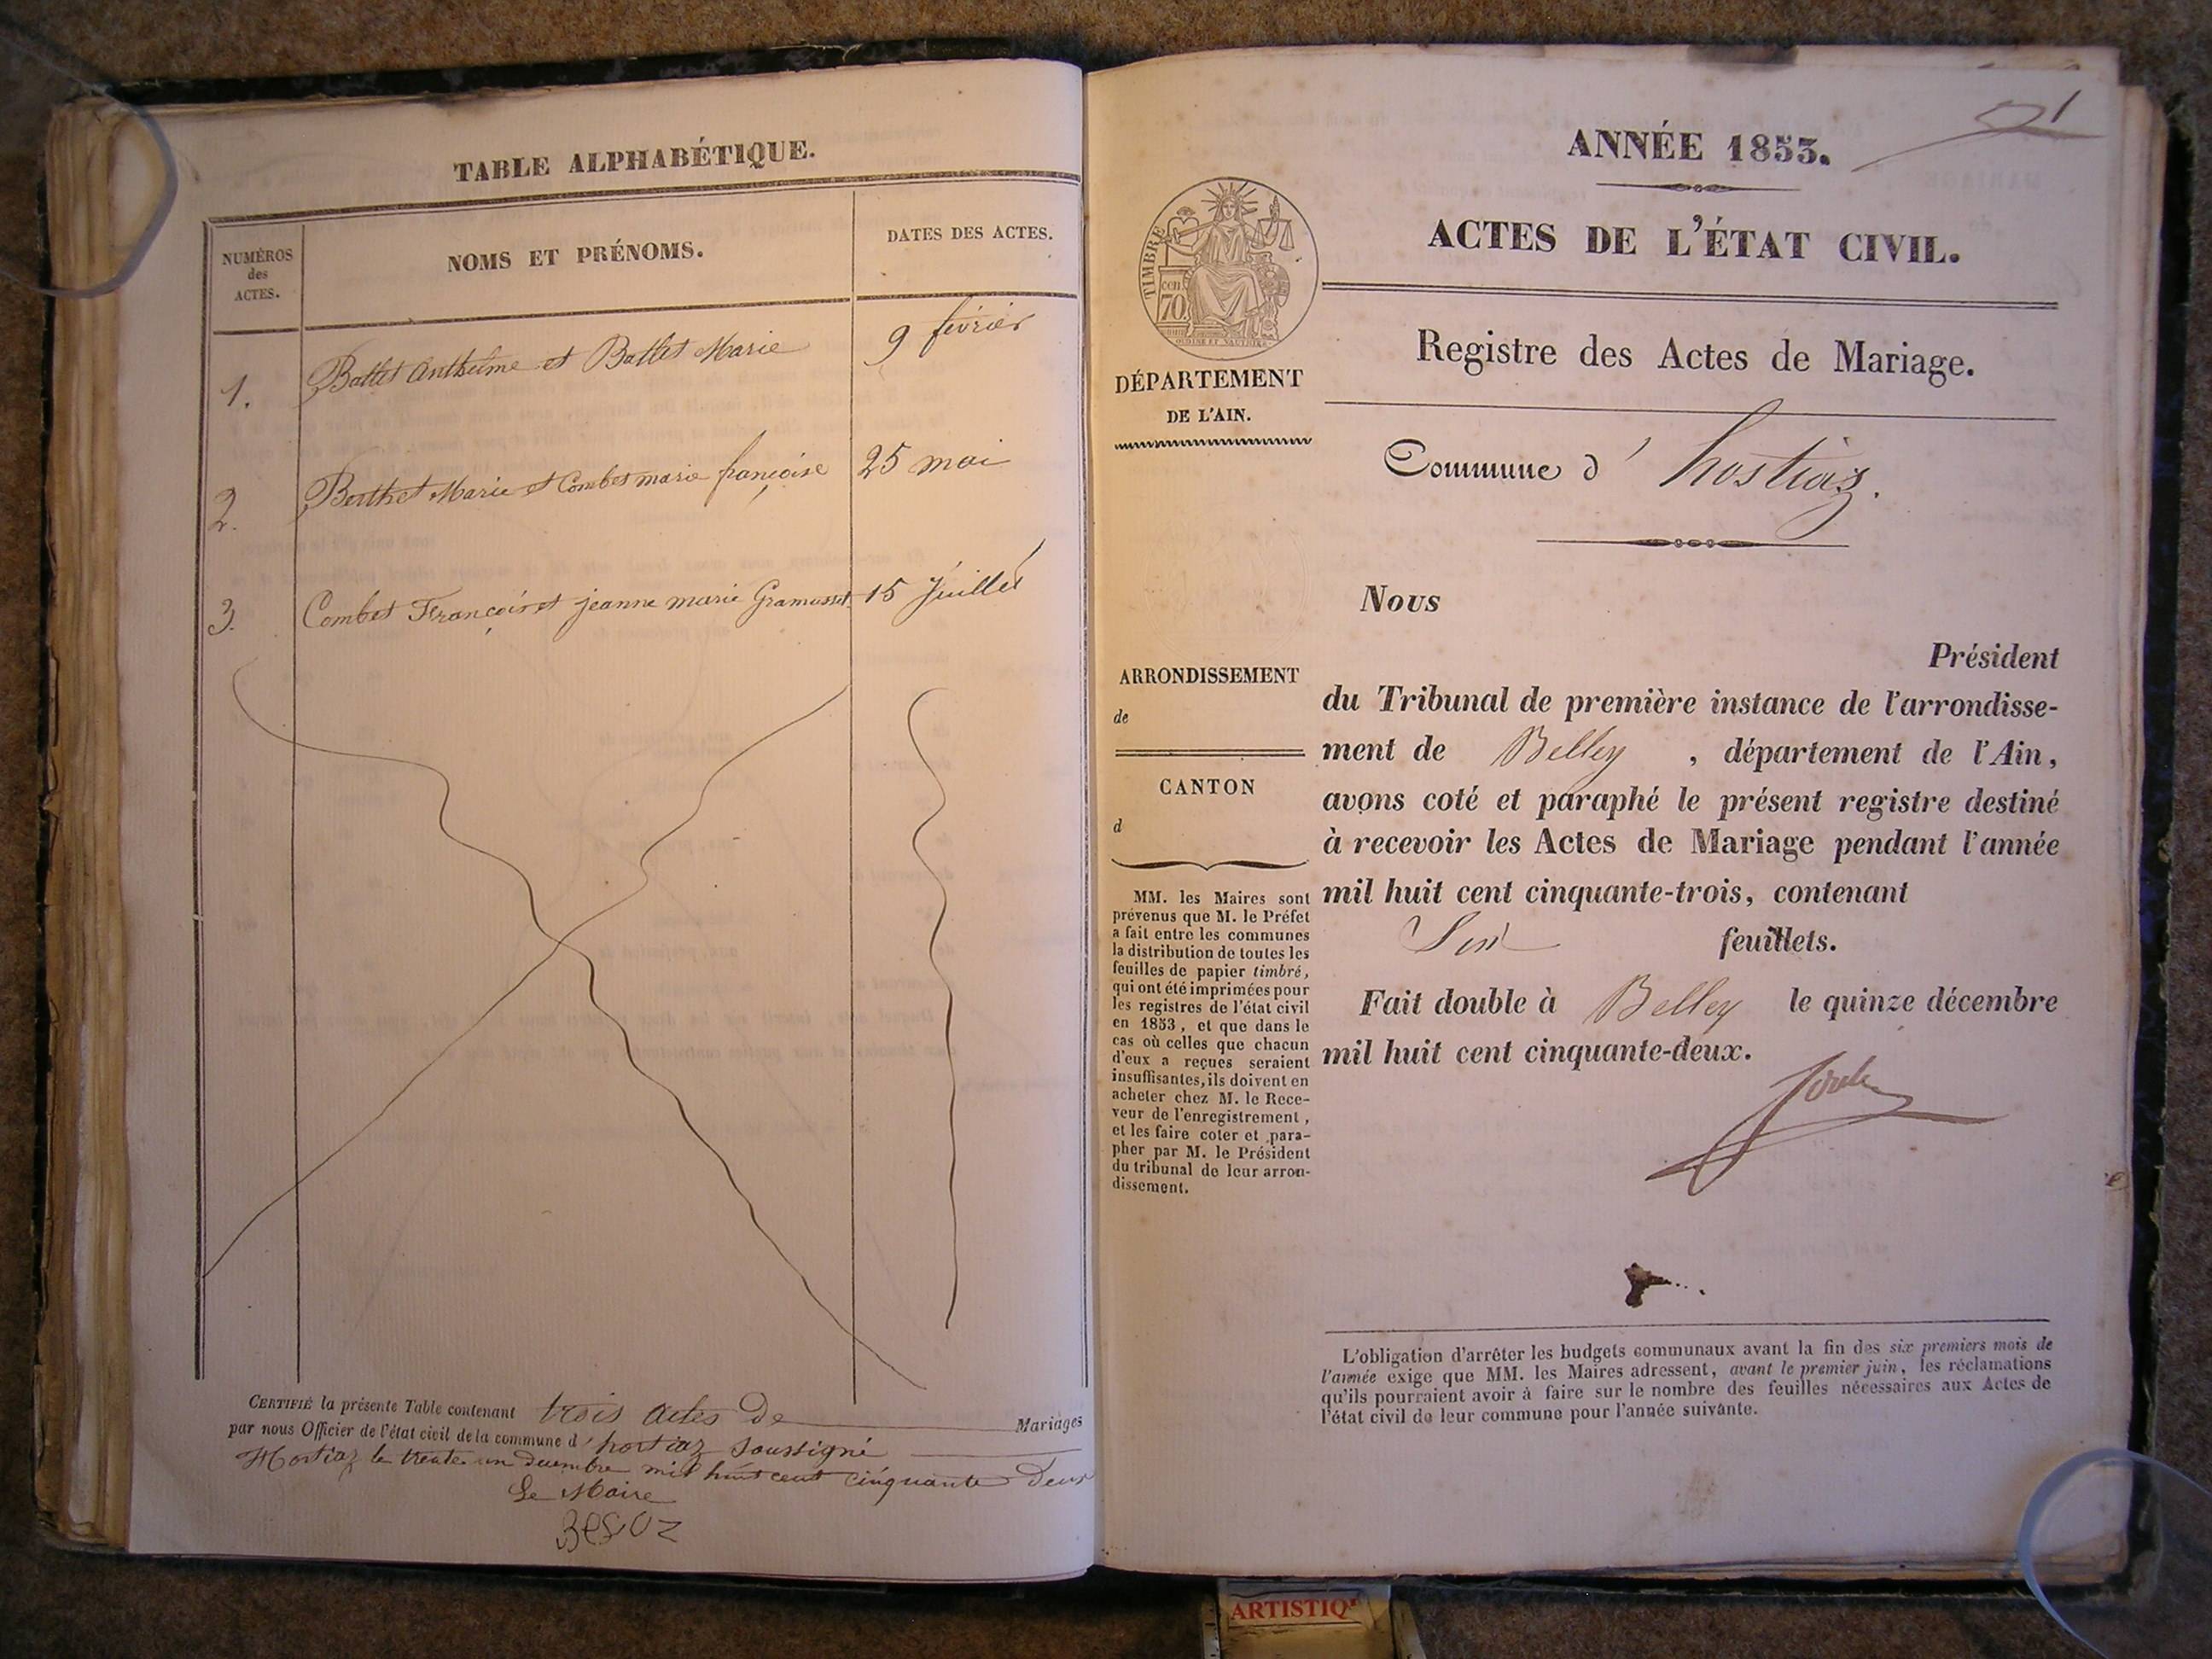 TABLE ALPHABÉTIQUE.
NUMÉROS
des
ACTES.
NOMS ET PRÉNOMS.
DATES DES ACTES.
1. Ballet Anthelme et Ballet Marie 9 février
2. Berthet Marie et Combet marie françoise 25 mai
3. Combet François et jeanne marie Gramusset 15 Juillet
CERTIFIÉ la présente Table contenant trois actes de Mariages
par nous Officier de l'état civil de la commune d'hostiaz soussigné
Hostiaz le trente un decembre mil huit cent cinquante deux
Le Maire
ANNÉE 1853.
1
ACTES DE L'ÉTAT CIVIL.
TIMBRE
cen
70
Registre des Actes de Mariage.
DÉPARTEMENT
DE L'AIN.
Commune d'hostiaz.
Nous
Président
du Tribunal de première instance de l'arrondisse-
ment de Belley, département de l'Ain,
avons coté et paraphé le présent registre destiné
à recevoir les Actes de Mariage pendant l'année
mil huit cent cinquante-trois, contenant
Six feuillets.
Fait double à Belley le quinze décembre
mil huit cent cinquante-deux.
ARRONDISSEMENT
de
CANTON
d
MM. les Maires sont
prévenus que M. le Préfet
a fait entre les communes
la distribution de toutes les
feuilles de papier timbré,
qui ont été imprimées pour
les registres de l'état civil
en 1853, et que dans le
cas où celles que chacun
d'eux a reçues seraient
insuffisantes, ils doivent en
acheter chez M. le Rece-
veur de l'enregistrement,
et les faire coter et para-
pher par M. le Président
du tribunal de leur arron-
dissement.
L'obligation d'arrêter les budgets communaux avant la fin des six premiers mois de
l'année exige que MM. les Maires adressent, avant le premier juin, les réclamations
qu'ils pourraient avoir à faire sur le nombre des feuilles nécessaires aux Actes de
l'état civil de leur commune pour l'année suivante.
ARTISTIQ